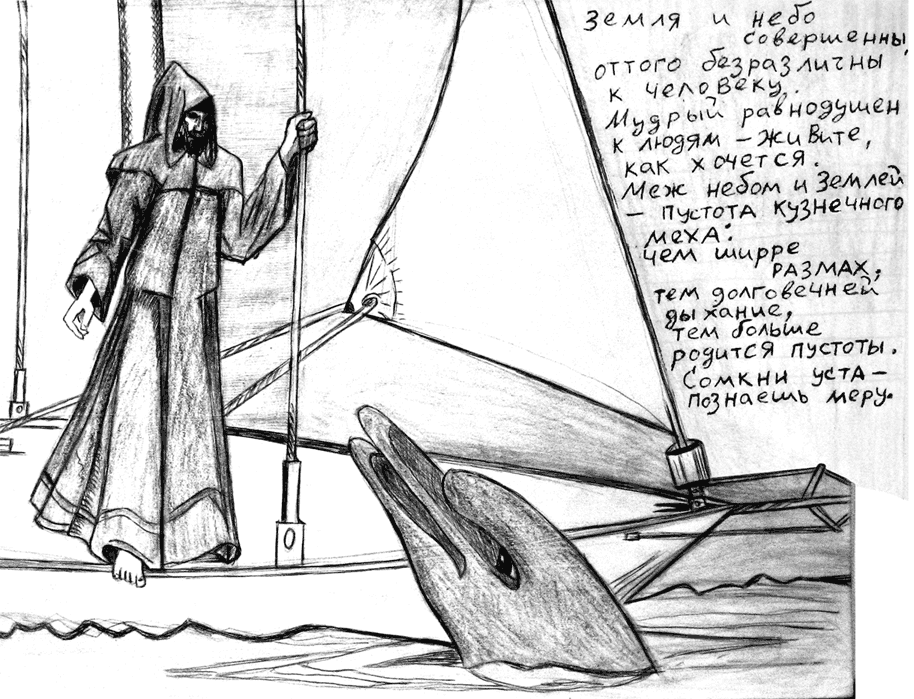 Земля и небо
совершенны,
оттого безразличны
к человеку.
Мудрый равнодушен
к людям – живите,
как хочется.
Меж небом и Землей
– пустота кузнечного
меха:
чем ширре
размах,
тем долговечней
дыхание,
тем больше
родится пустоты.
Сомкни уста –
познаешь меру.